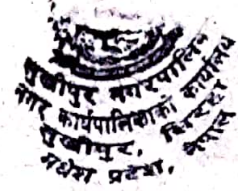 सुखीपुर नगरपालिका
नगर कार्यपालिकाको कार्यालय
सुखीपुर, सिरहा
मधेश प्रदेश, नेपाल